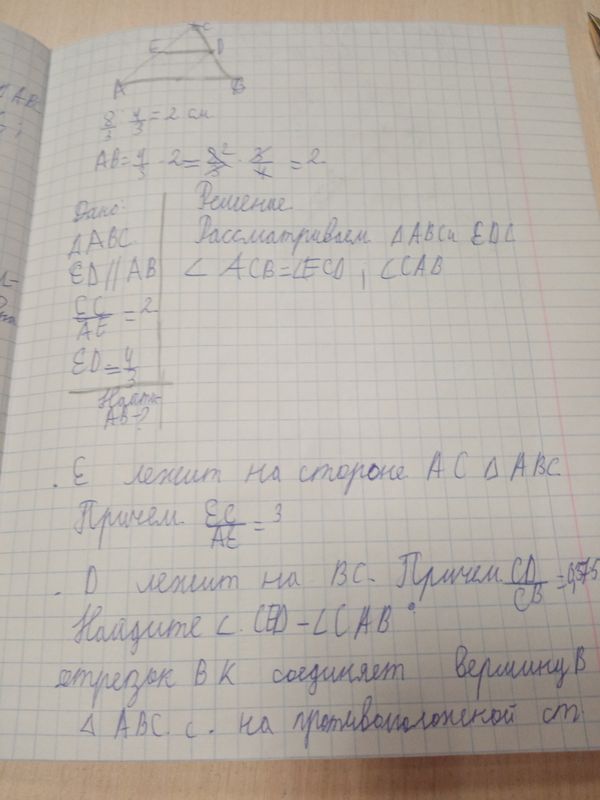 C
E D
A B
8/3 : 4/3 = 2 см
AB = 4/3 · 2 = 8/3 · 3/4 = 2
Дано:
ΔABC
ED // AB
EC/AE = 2
ED = 4/3
Найти
AB - ?
Решение
Рассматриваем ΔABC и EDC
∠ ACB = ∠ECD, ∠CAB
. E лежит на стороне AC Δ ABC
Причем EC/AE = 3
. D лежит на BC. Причем CD/CB =
Найдите ∠. CED - ∠CAB °
отрезок BK соединяет вершину B
Δ ABC. с. на противоположной ст.